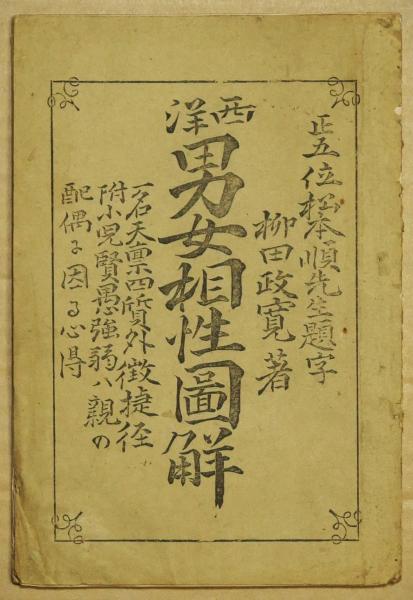 正五位松本順先生題字
柳田政寛著
西洋
男女相性圖解
一名天稟四質外徴捷径
附小児賢愚強弱ハ親の
配偶に因る心得